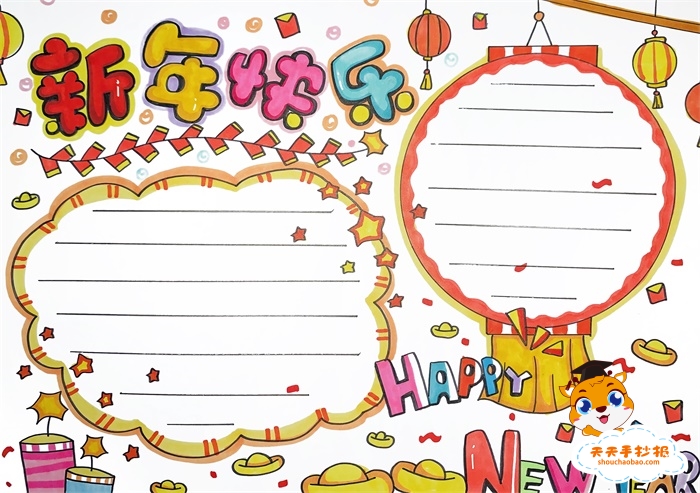 新年快乐
HAPPY
NEW YEAR
天天手抄报
shouchaobao.com